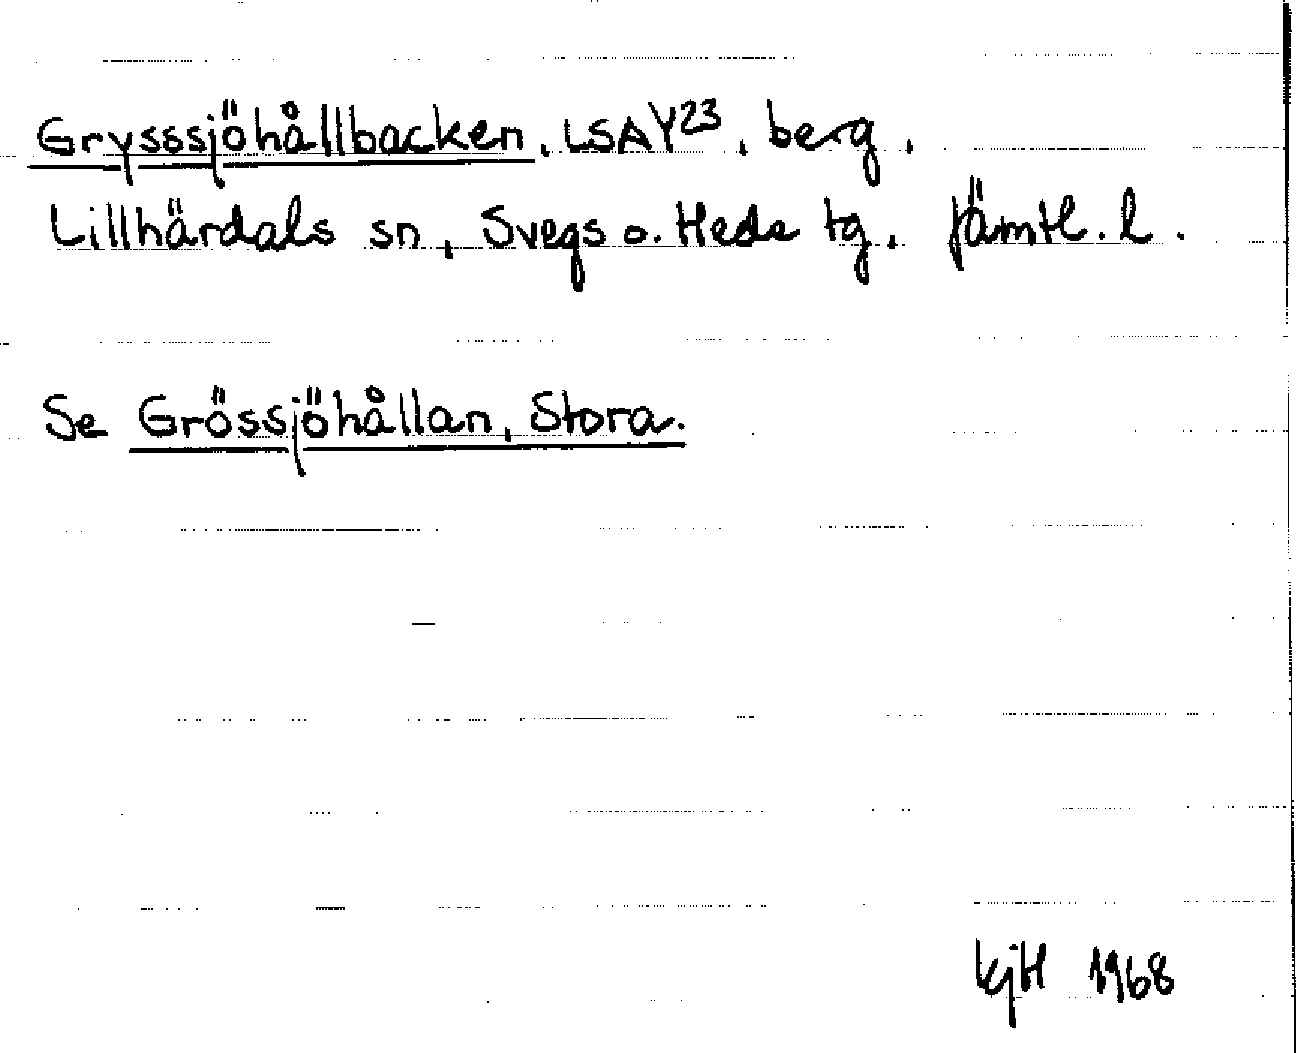 Grysssjöhållbacken, LSA Y23, berg,
Lillhärdals sn, Svegs o. Heds tg, Jämtl. l.
Se Grössjöhållan, Stora.
KjH 1968